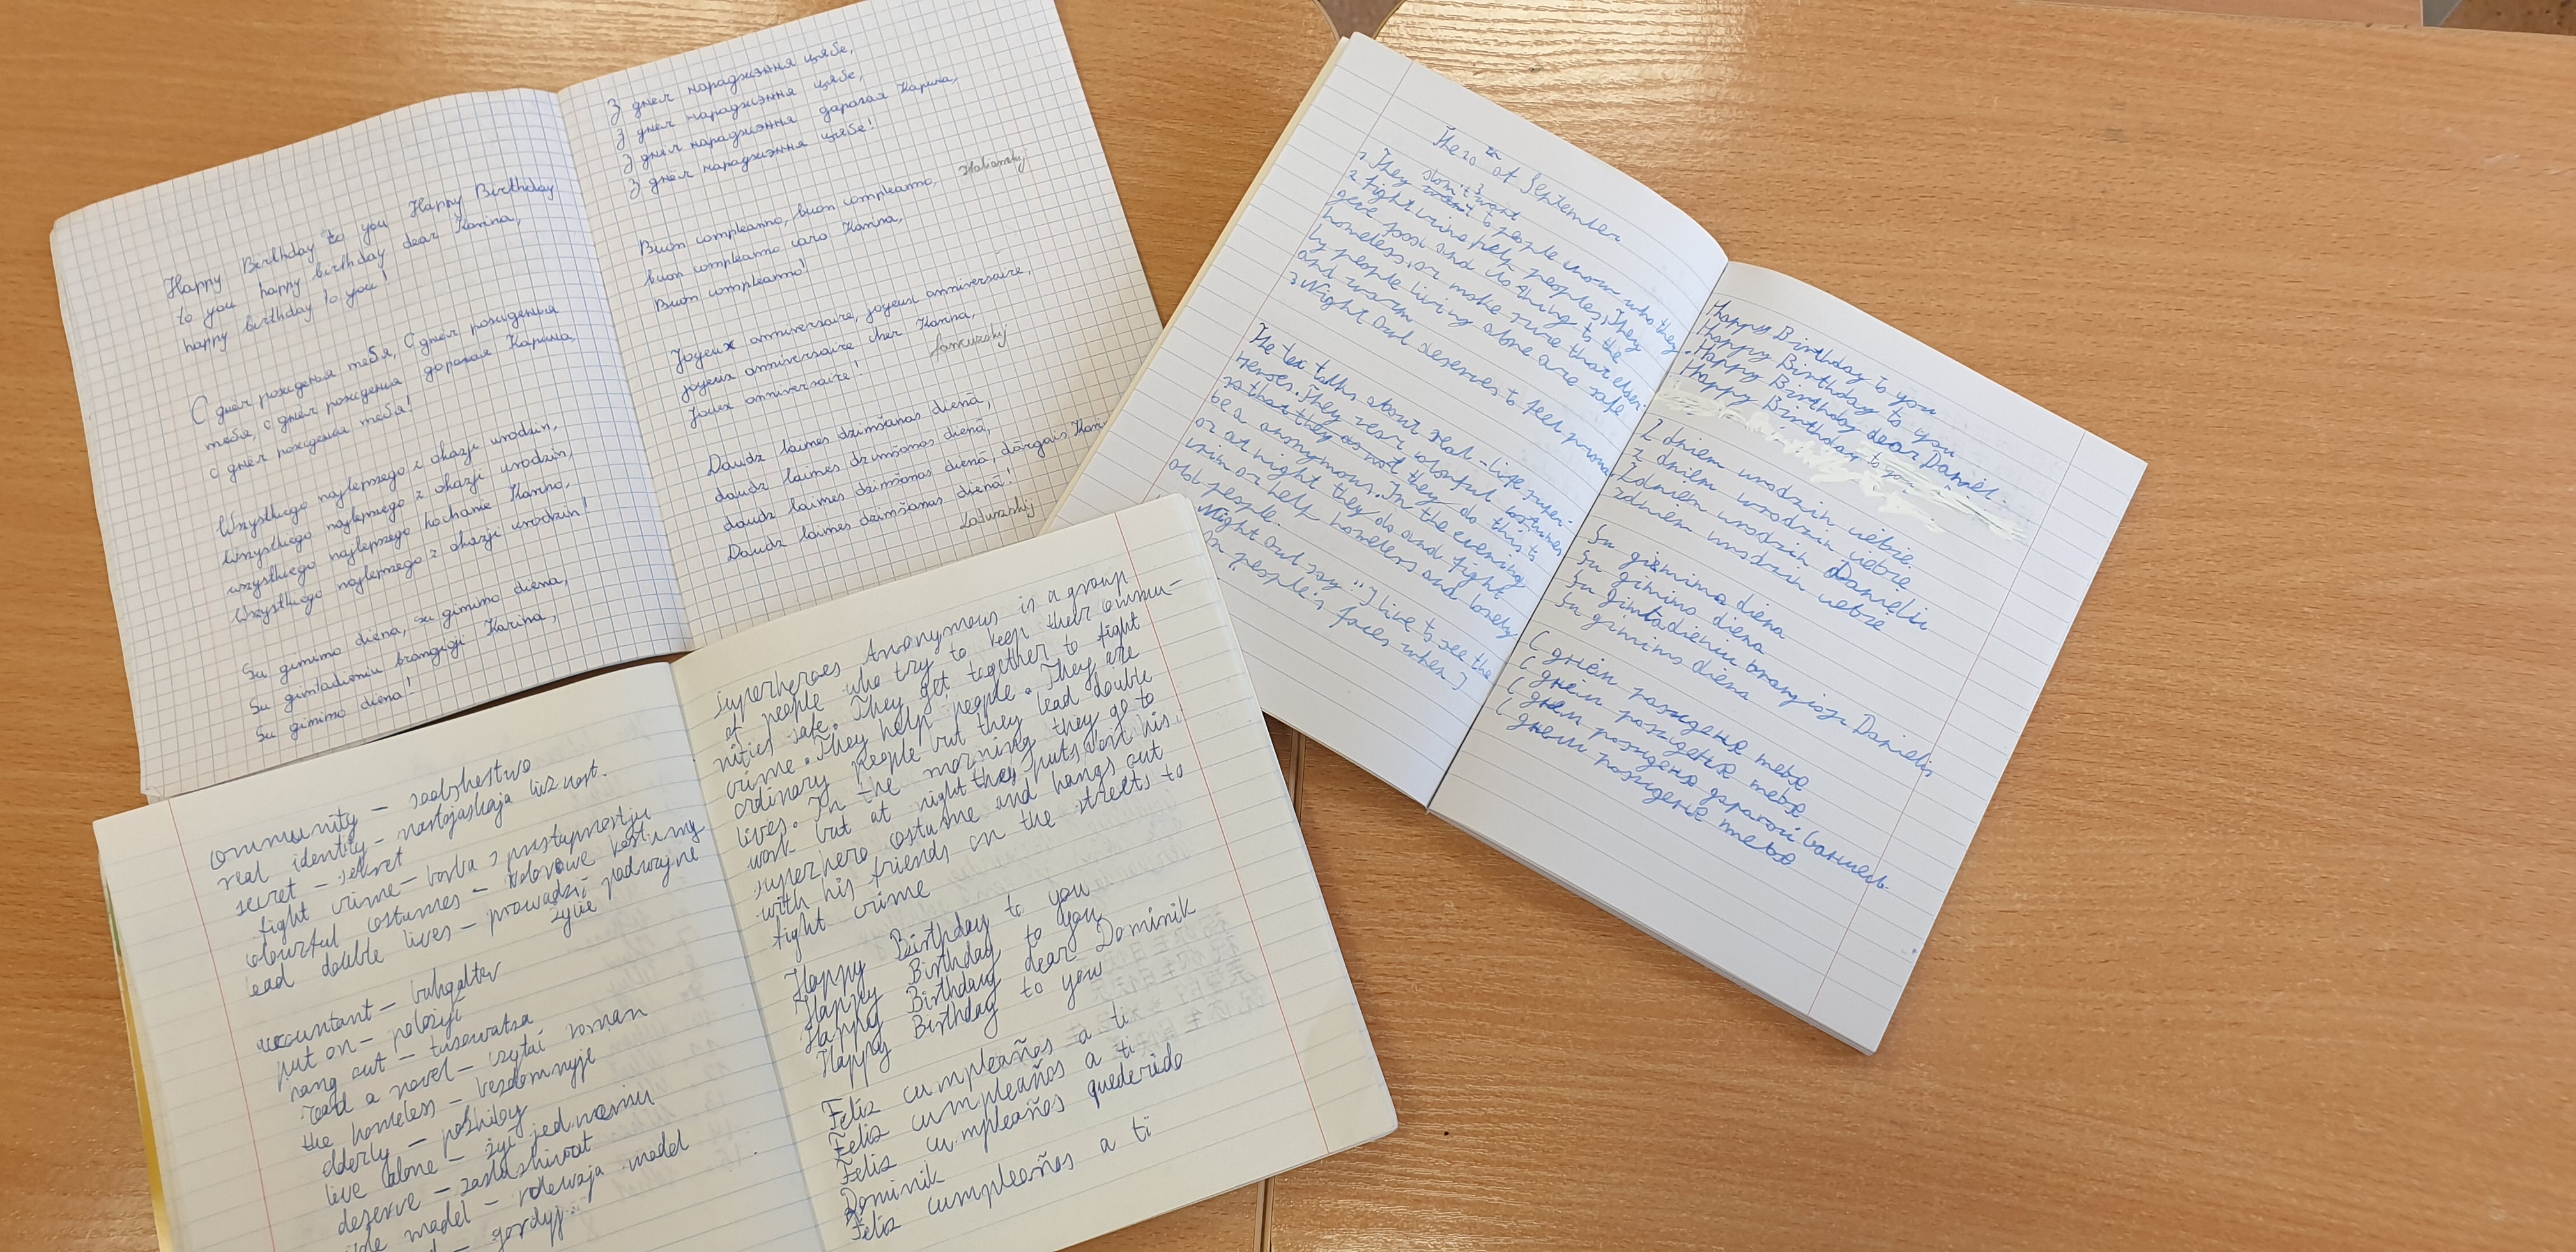 Happy Birthday to you Happy Birthday
to you happy birthday dear Karina,
happy birthday to you!
С днём рождения тебя, С днём рождения
тебя, с днём рождения дорогая Карина,
с днём рождения тебя!
Wszystkiego najlepszego z okazji urodzin,
Wszystkiego najlepszego z okazji urodzin,
wszystkiego najlepszego kochanie Karino,
Wszystkiego najlepszego z okazji urodzin!
Su gimimo diena, su gimimo diena,
Su gimtadieniu brangioji Karina,
Su gimimo diena!
З днём нараджэння цябе,
З днём нараджэння цябе,
З днём нараджэння дарагая Карина,
З днём нараджэння цябе!
Buon compleanno, buon compleanno, Italianskij
buon compleanno caro Karina,
Buon compleanno!
Joyeux anniversaire, joyeux anniversaire,
joyeux anniversaire cher Karina,
Joyeux anniversaire!
Daudz laimes dzimšanas dienā,
daudz laimes dzimšanas dienā,
daudz laimes dzimšanas dienā, dārgais
Daudz laimes dzimšanas dienā!
The 20th of September
1 They don't want to people know who they
2 fight crime, help peoples, They
give food and to the
homeless, or make sure that elder-
ly people living alone are safe
and warm
3 Night Owl deserves to feel
The tex talks about real-life super-
heroes. They wear colourful costumes
so that they do not they do this to
be a anonymous. In the evening
or at night they do and fight
crim or help homeless and lonely
old people.
Night Owl say "I live to see the
on people's faces when I
Happy Birthday to you
Happy Birthday to you
Happy Birthday dear Daniel.
Happy Birthday to you
Z dniem urodzin ciebie
z dniem urodzin ciebie
Z dniem urodzin Danielu
z dniem urodzin ciebie
Su gimimo diena
Su gimimo diena
Su gimtadieniu brangioji Danielis
Su gimimo diena
С днём рождення тебя
С днём рождення тебя
С днём рождення дарагой
С днём рождення тебя
community – soobshestvo
real identity – nastojaskaja
secret – sekret
fight crime – borba s prestupnostju
colourful costumes – kolorowe kostiumy
lead double lives – prowadzić podwójne
życie
accountant – buhgalter
put on – położyć
hang out – tusowatsa
read a novel – czytać roman
the homeless – bezdomnyje
elderly – pozhiloy
live alone – żyć
deserve – zasłushiwat
role model – rolewaja model
gordyj
Superheroes Anonymous is a group
of people who try to keep their commu-
nities safe. They get together to fight
crime. They help people. They are
ordinary people but they lead double
lives. In the morning they go to
work but at night they puts on his
superhero costume and hangs out
with his friends on the streets to
fight crime
Happy Birthday to you
Happy Birthday to you
Happy Birthday dear Dominik
Happy Birthday to you
Feliz cumpleaños a ti
Feliz cumpleaños a ti
Feliz cumpleaños quederido
Dominik
Feliz cumpleaños a ti